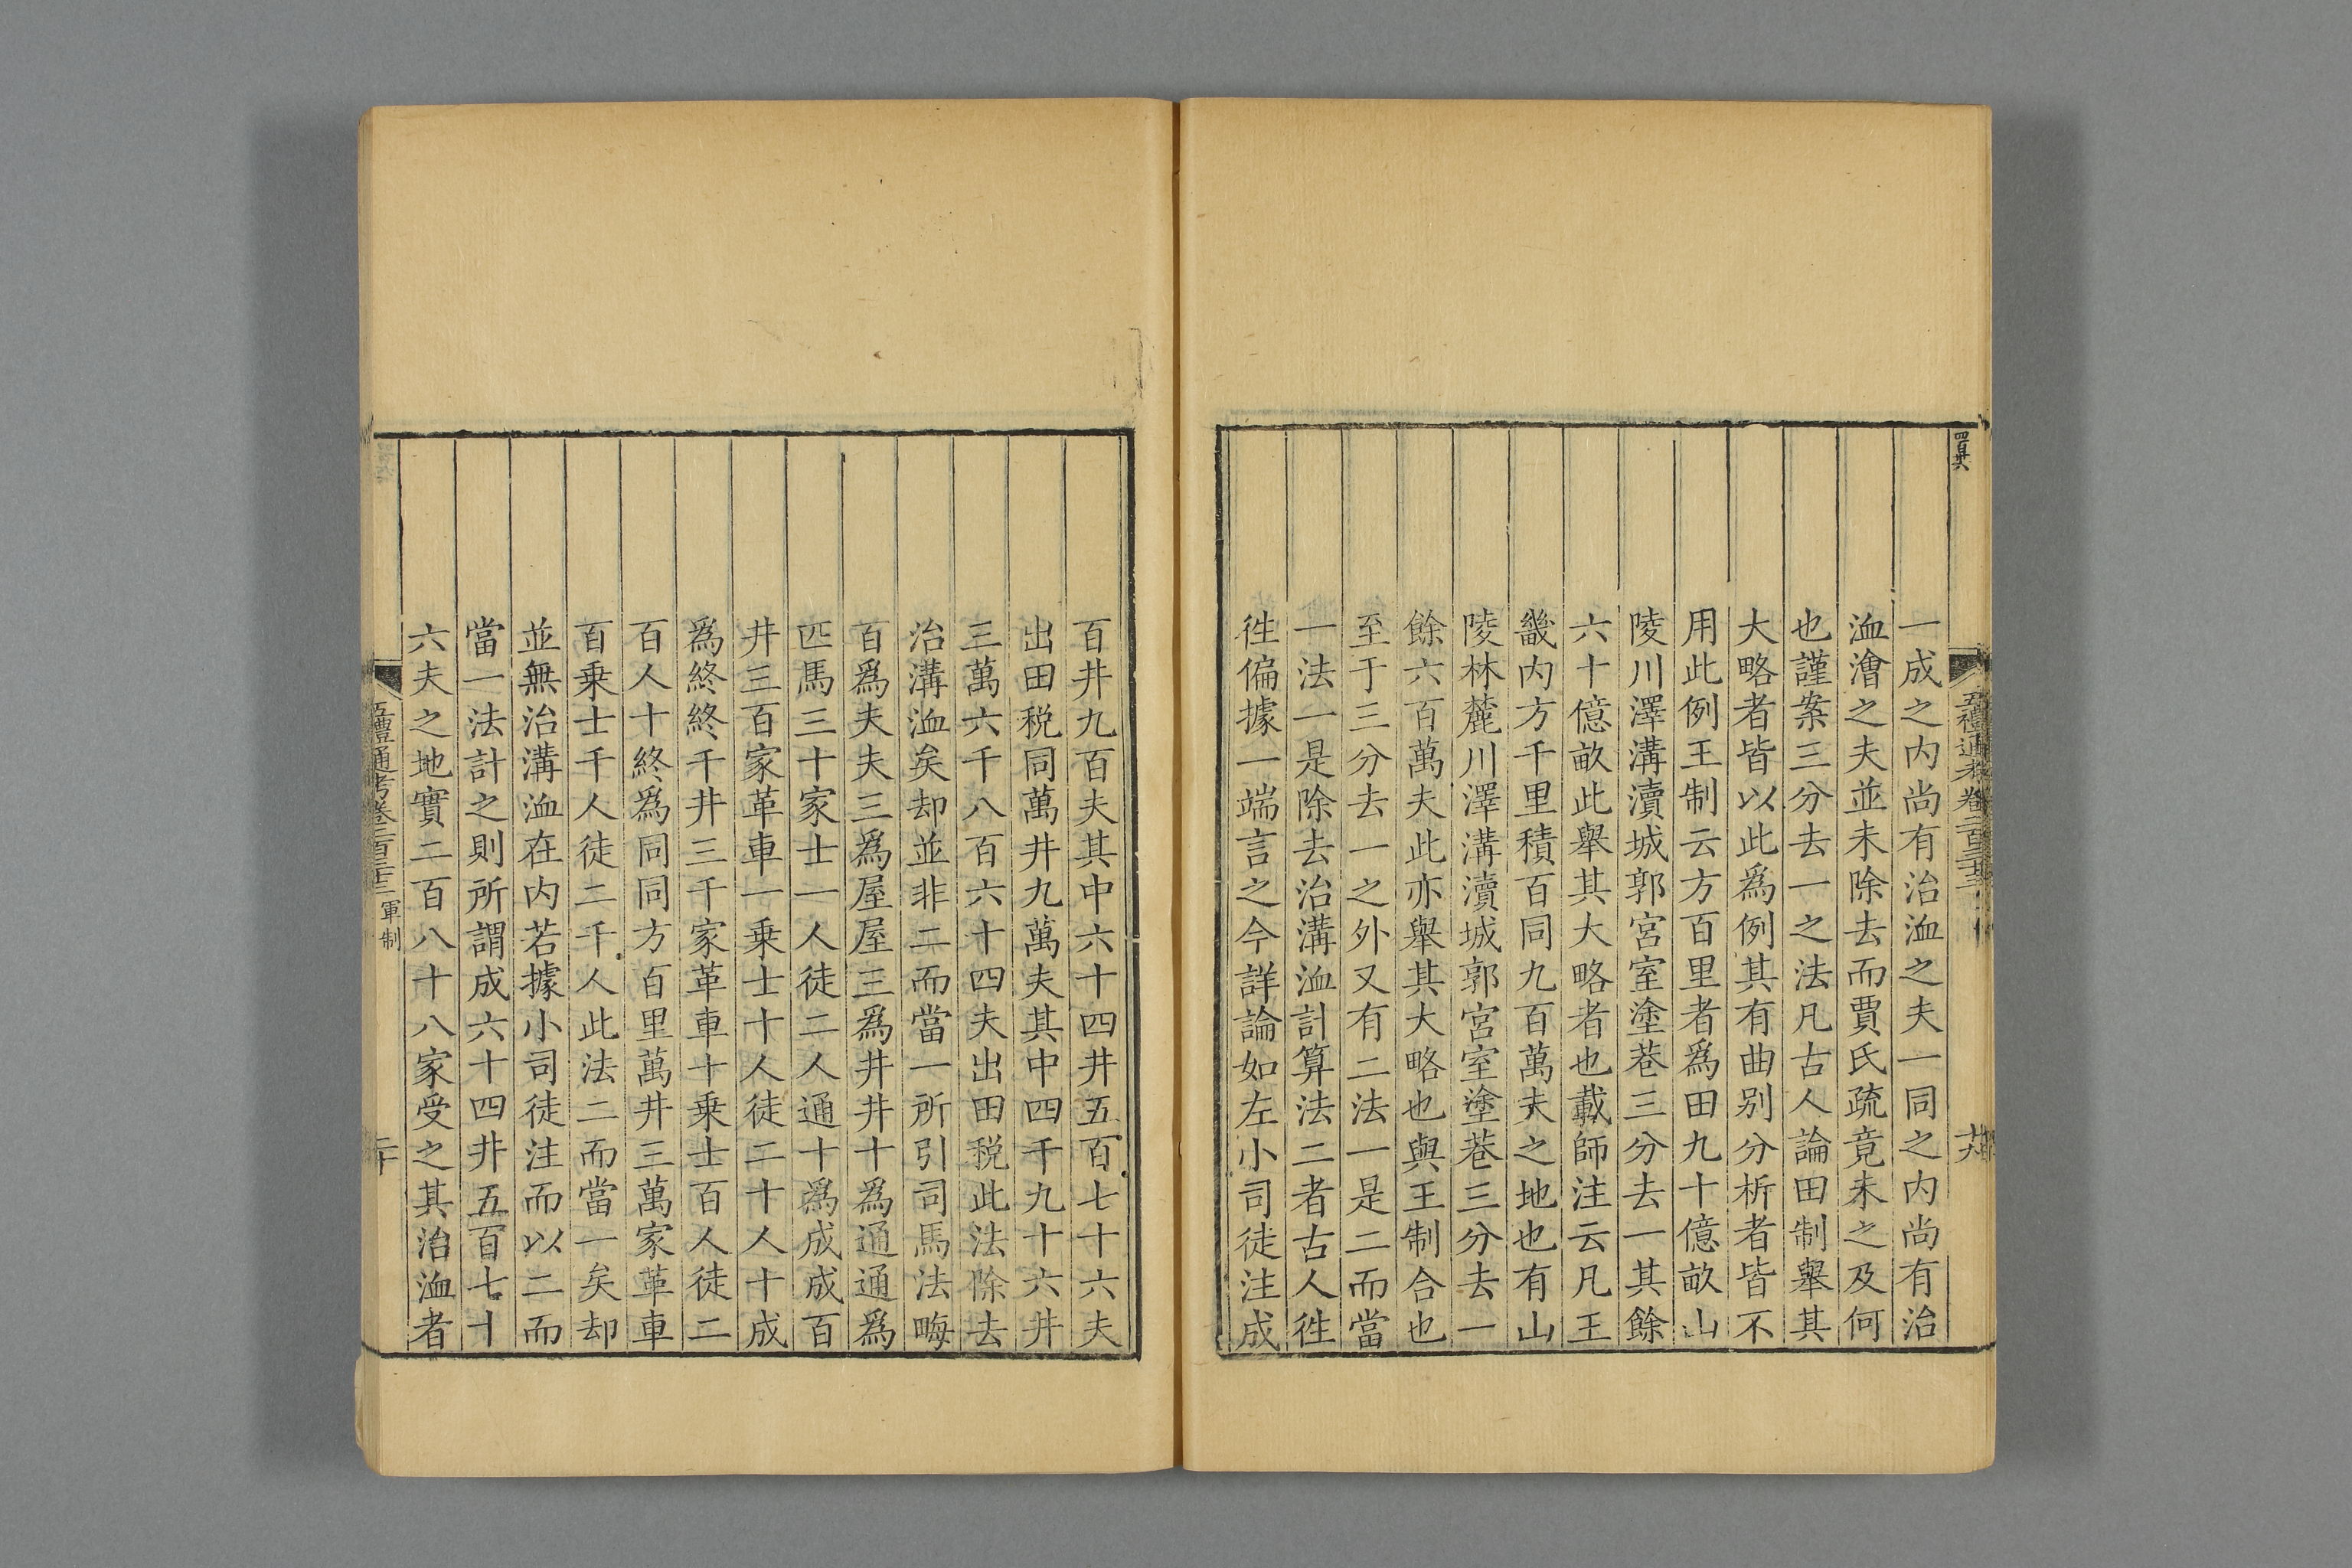 一成之内尚有治洫之夫一同之内尚有治
洫澮之夫並未除去而賈氏疏竟未之及何
也謹案三分去一之法凡古人論田制舉其
大略者皆以此爲例其有曲别分析者皆不
用此例王制云方百里者爲田九十億畝山
陵川澤溝瀆城郭宮室塗巷三分去一其餘
六十億畝此舉其大略者也載師注云凡王
畿内方千里積百同九百萬夫之地也有山
陵林麓川澤溝瀆城郭宮室塗巷三分去一
餘六百萬夫此亦舉其大略也與王制合也
至于三分去一之外又有二法一是二而當
一法一是除去治溝洫計算法二者古人徃
徃偏據一端言之今詳論如左小司徒注成
百井九百夫其中六十四井五百七十六夫
出田税同萬井九萬夫其中四千九十六井
三萬六千八百六十四夫出田税此法除去
治溝洫矣却並非二而當一所引司馬法畮
百爲夫夫三爲屋屋三爲井井十爲通通爲
匹馬三十家士一人徒二人通十爲成成百
井三百家革車一乗士十人徒二十人十成
爲終終千井三千家革車十乗士百人徒二
百人十終爲同同方百里萬井三萬家革車
百乗士千人徒二千人此法二而當一矣却
並無治溝洫在内若據小司徒注而以二而
當一法計之則所謂成六十四井五百七十
六夫之地實二百八十八家受之其治洫者
五禮通考卷二百三十三 軍制